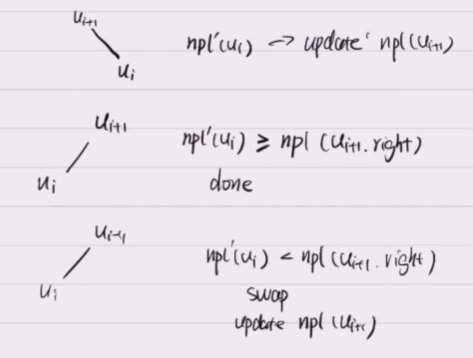 u_{i+1}
npl'(u_i) → update npl(u_{i+1})
u_i
u_{i+1}
npl'(u_i) ≥ npl (u_{i+1}.right)
u_i
done
u_{i+1}
npl'(u_i) < npl(u_{i+1}.right)
u_i
swap
update npl(u_{i+1})